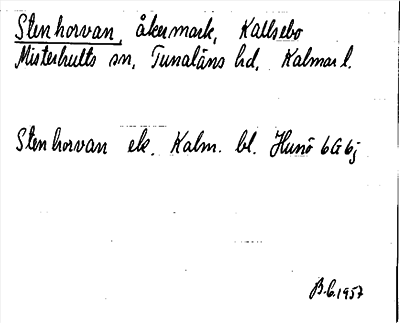 Stenhorvan, åkermark, Kallsebo
Misterhults sn, Tunaläns hd, Kalmar l.
Stenhorvan ek. Kalm. bl. Hunö 6G 6j
B.C. 1957